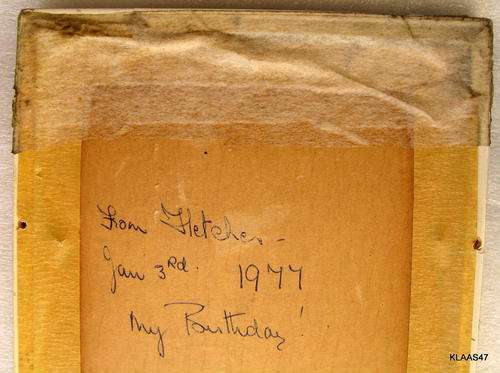 From Fletcher -
Jan 3Rd. 1977
My Birthday!
KLAAS47